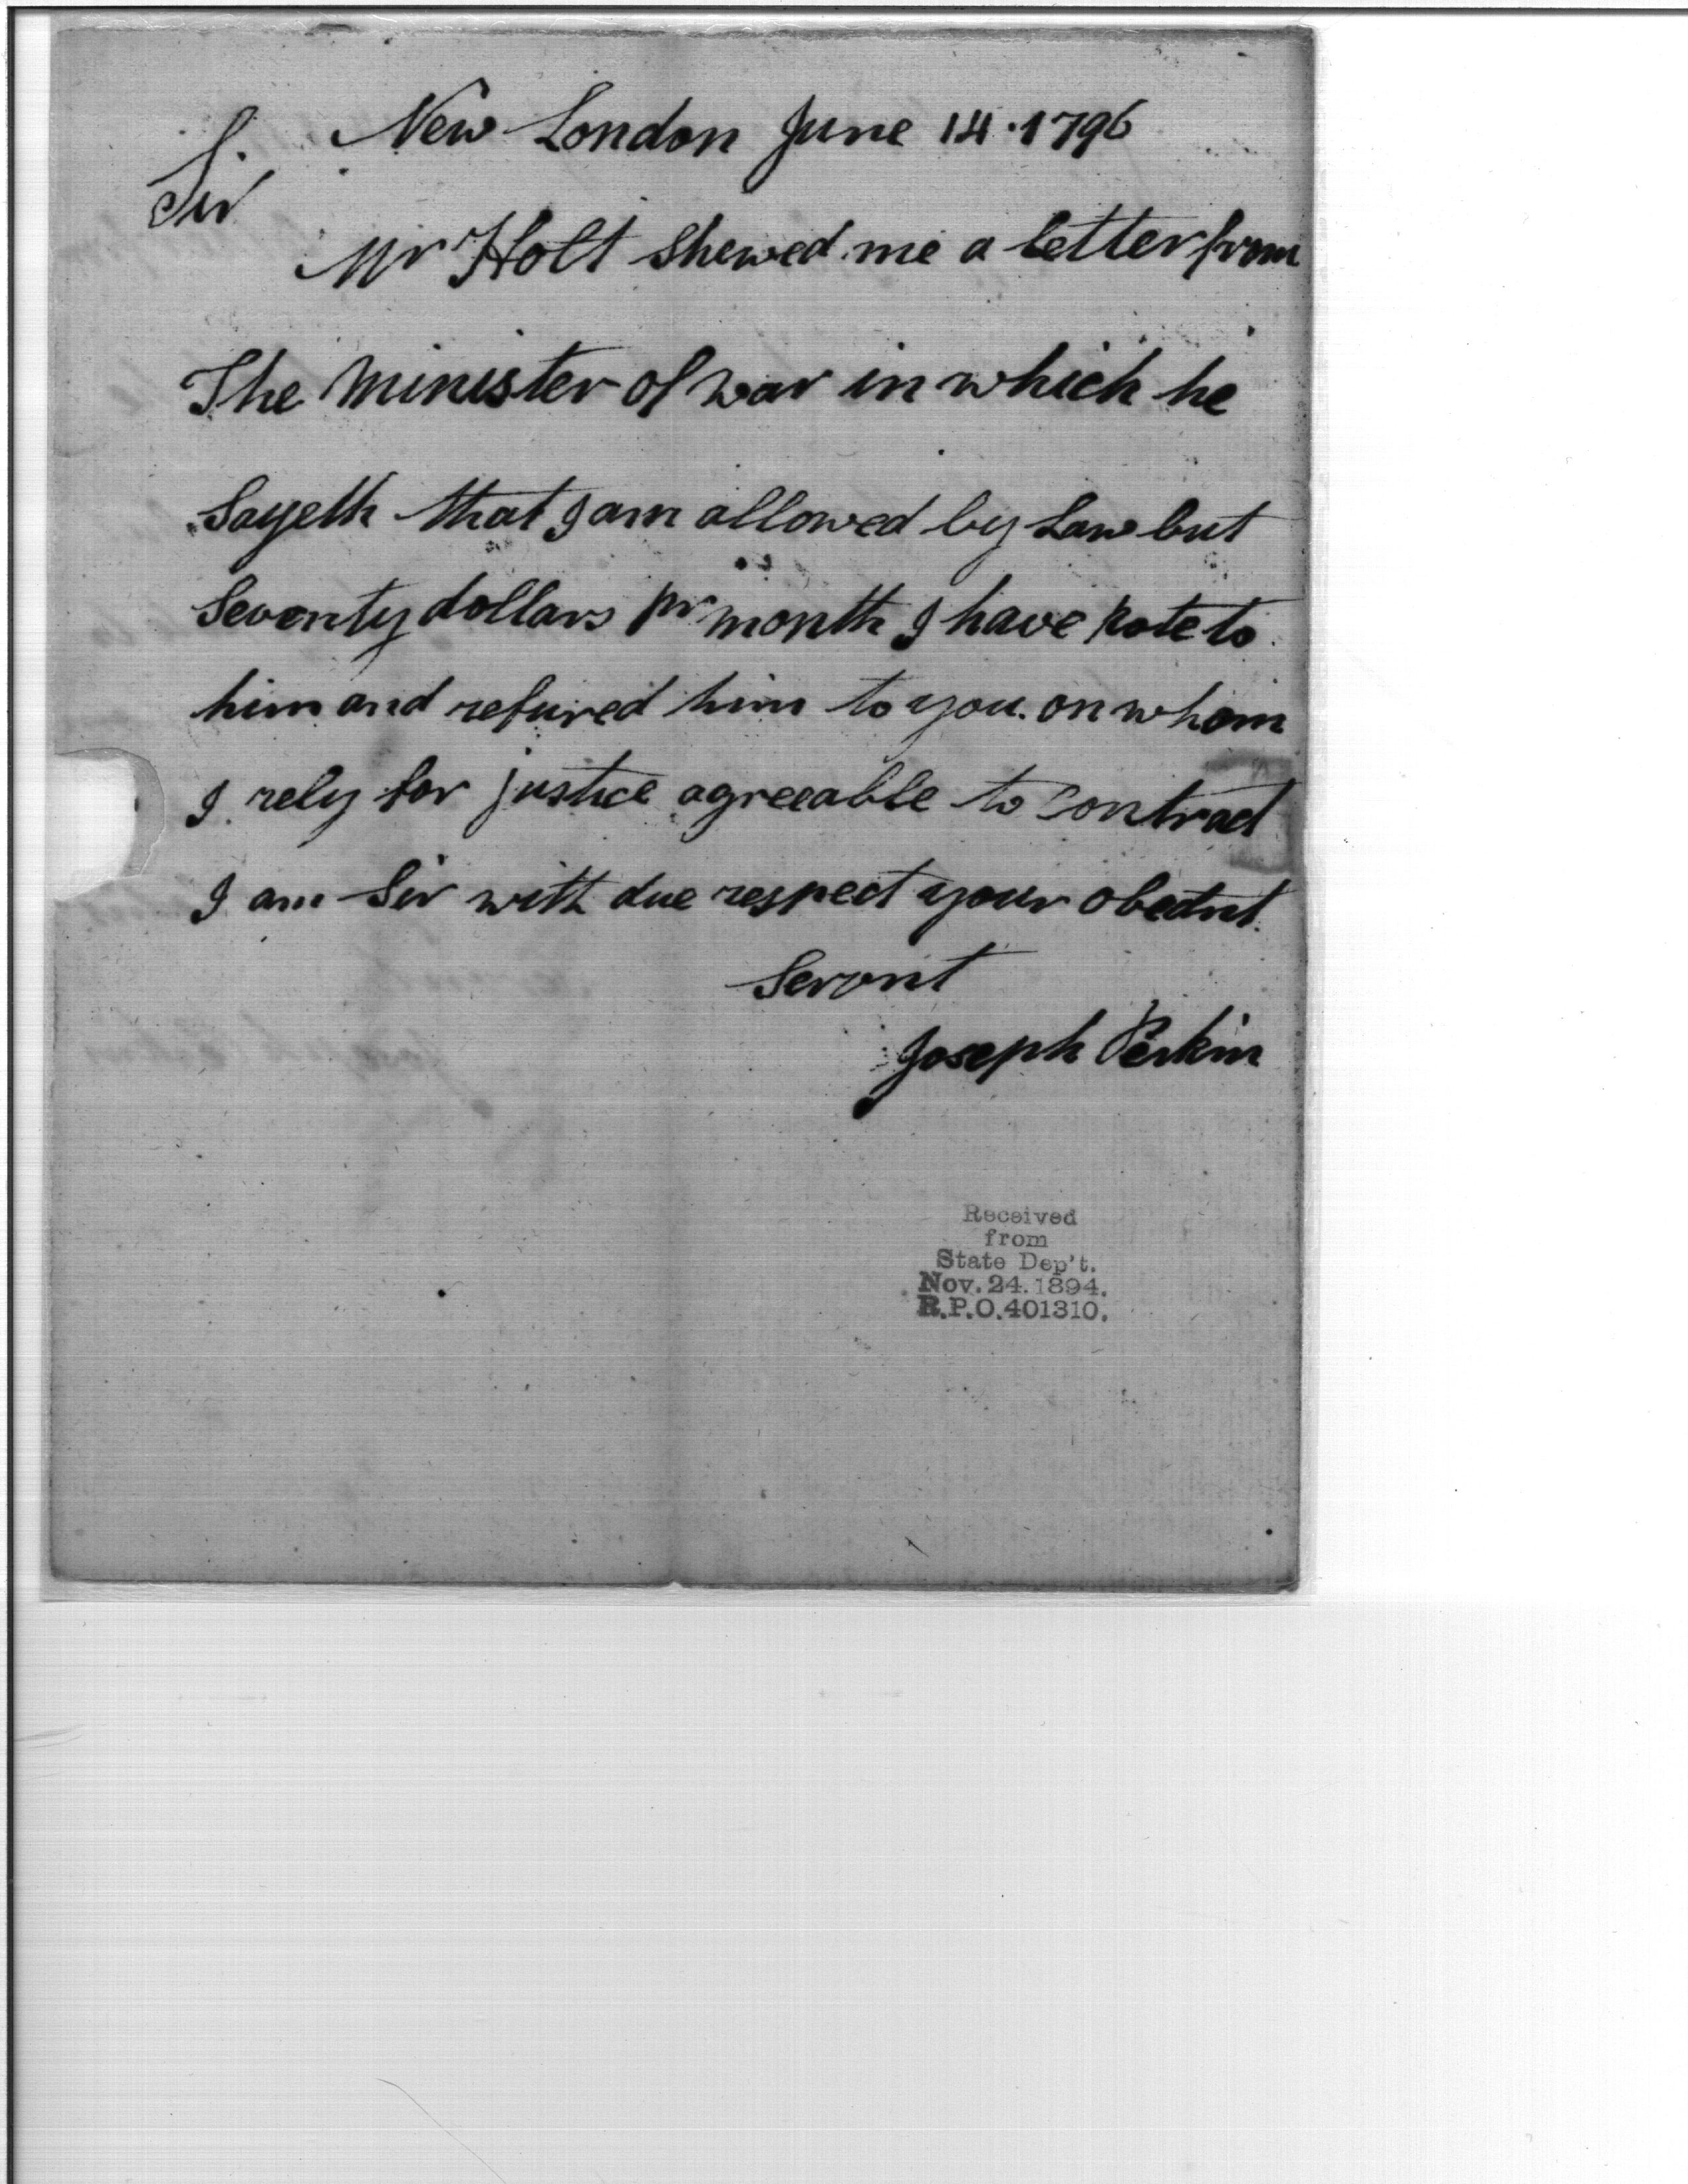 New London June 14 . 1796
Sir
Mr Holt Shewed me a letter from
The Minister of war in which he
Sayeth that I am allowed by Law but
Seventy dollars pr month I have rote to
him and refured him to you. on whom
I rely for justice agreeable to Contract
I am Sir with due respect your obednt.
Servnt
Joseph Perkin
Received
from
State Dep't.
Nov. 24. 1894.
R.P.O. 401310.